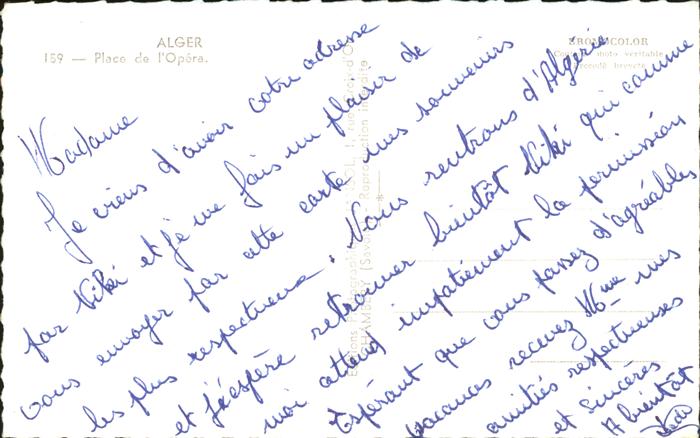 ALGER
159 — Place de l'Opéra.
Madame
Je viens d'avoir votre adresse
par Viki et je me fais un plaisir de
vous envoyer par cette carte mes souvenirs
les plus respectueux. Nous rentrons d'Algérie
et j'espère retrouver bientôt Viki qui comme
moi attend impatiement la permission
Espérant que vous passez d'agréables
vacances recevez Mme mes
amitiés respectueuses
et sincères
A bientôt